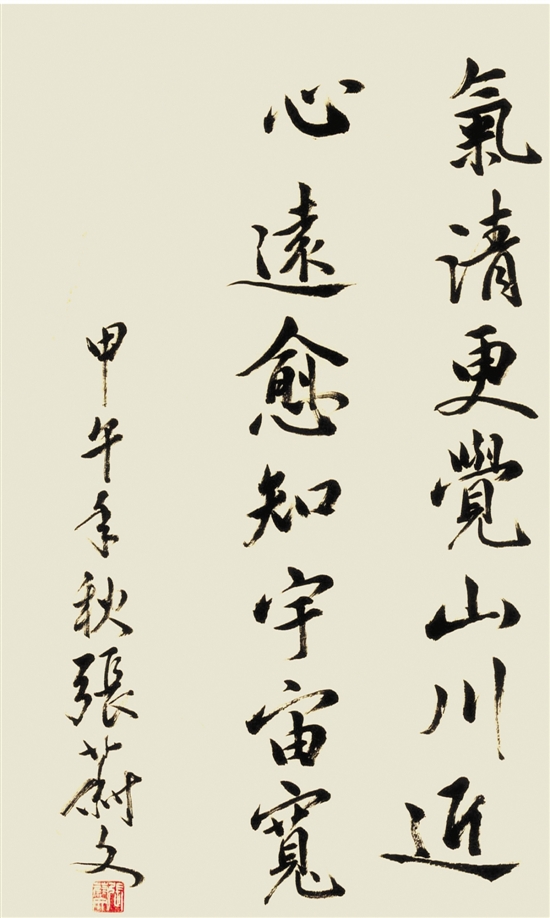 氣清更覺山川近
心遠愈知宇宙寬
甲午年秋張蔚文